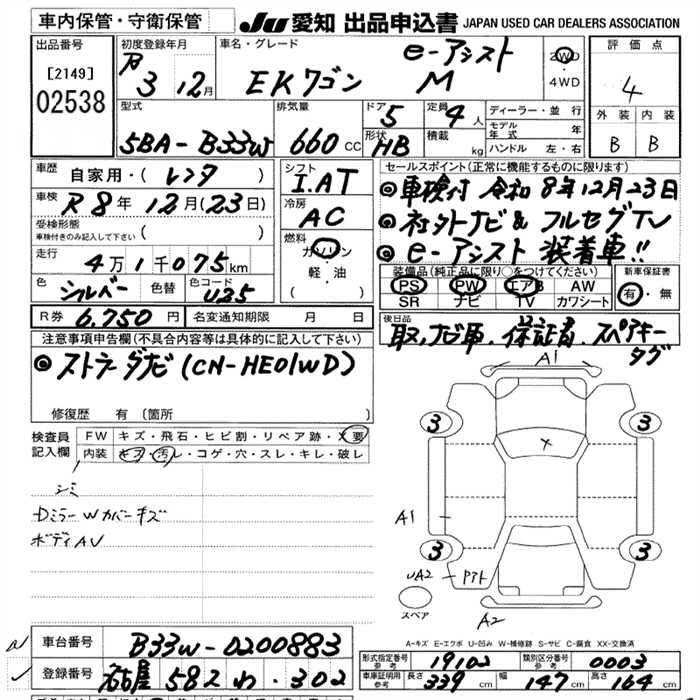 車内保管・守衛保管
JU 愛知 出品申込書 JAPAN USED CAR DEALERS ASSOCIATION
出品番号
[2149]
02538
初度登録年月
R 3 12月
車名・グレード
e-アシスト
EKワゴン M
2WD
・
4WD
評価点
4
外装 内装
B B
型式
5BA-B33W
排気量
660 CC
ドア
5
形状
HB
定員
4人
積載
kg
ディーラー・並行
モデル年式 年
ハンドル 左・右
車歴
自家用・(レンタ)
車検
R8年12月(23日)
受検形態
車検付きのみ記入して下さい ( )
走行
4万1千075km
色
シルバー
色替
色コード
U25
シフト
I.AT
冷房
AC
燃料
ガソリン
軽・油
( )
セールスポイント(正常に機能するものに限ります)
◎車検付 令和8年12月23日
◎社外ナビ& フルセグTV
◎e-アシスト 装着車!!
装備品(純正品に限り○をつけてください)
PS PW エアB AW
SR ナビ TV カワシート
新車保証書
有・無
R券 6.750円
名変通知期限 月 日
後日品
取,ナビ取. 保証書. スペアキー
タグ
注意事項申告欄(不具合内容等は具体的に記入して下さい)
◎ストラーダナビ(CN-HE01WD)
修復歴 有(箇所 )
検査員
記入欄
FW キズ・飛石・ヒビ割・リペア跡・X要
内装 キズ・汚レ・コゲ・穴・スレ・キレ・破レ
シミ
DミラーWカバーキズ
ボディAU
A1
3 3
X
A1
3 3
UA2 アクト
スペア
A2
A-キズ E-エクボ U-凹み W-補修跡 S-サビ C-腐食 XX-交換済
車台番号 B33W-0200883
登録番号 名古屋 582 わ・302
形式指定番号
参考
19102
類別区分番号
参考
0003
車庫証明用
参考
長さ 339cm 幅 147cm 高さ 164cm